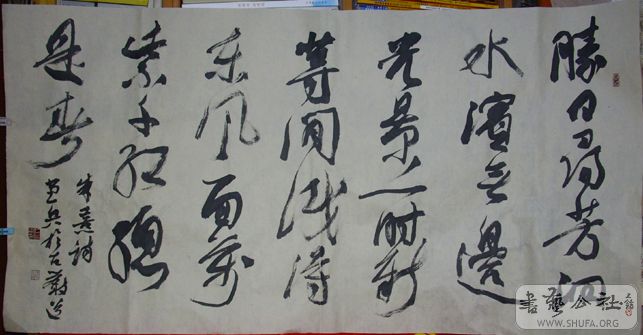 勝日尋芳泗
水濱無邊
光景一時新
等閒識得
東風面萬
紫千紅總
是春
朱熹詩
書藝公社
WWW.SHUFA.ORG